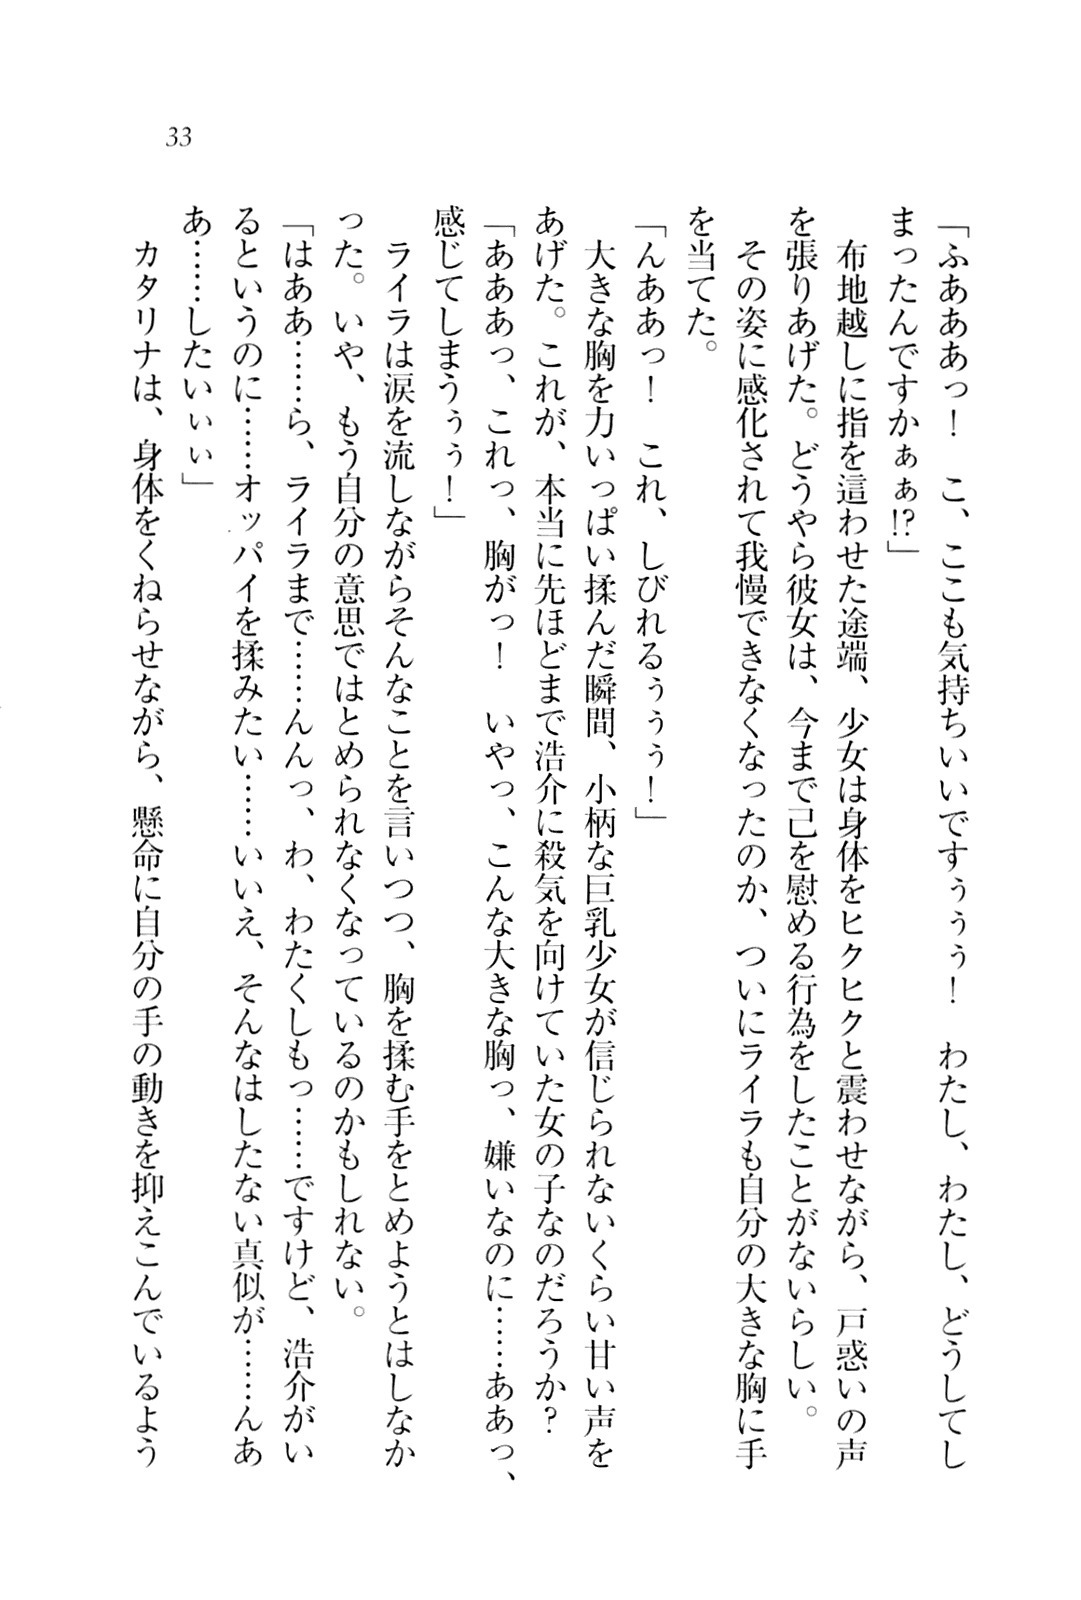 33
「ふあああっ！　こ、ここも気持ちいいですぅぅぅ！　わたし、わたし、どうしてし
まったんですかぁぁ!?」
　布地越しに指を這わせた途端、少女は身体をヒクヒクと震わせながら、戸惑いの声
を張りあげた。どうやら彼女は、今まで己を慰める行為をしたことがないらしい。
　その姿に感化されて我慢できなくなったのか、ついにライラも自分の大きな胸に手
を当てた。
「んああっ！　これ、しびれるぅぅぅ！」
　大きな胸を力いっぱい揉んだ瞬間、小柄な巨乳少女が信じられないくらい甘い声を
あげた。これが、本当に先ほどまで浩介に殺気を向けていた女の子なのだろうか？
「あああっ、これっ、胸がっ！　いやっ、こんな大きな胸っ、嫌いなのに……ああっ、
感じてしまうぅぅ！」
　ライラは涙を流しながらそんなことを言いつつ、胸を揉む手をとめようとはしなか
った。いや、もう自分の意思ではとめられなくなっているのかもしれない。
「はああ……ら、ライラまで……んんっ、わ、わたくしもっ……ですけど、浩介がい
るというのに……オッパイを揉みたい……いいえ、そんなはしたない真似が……んあ
あ……したいぃぃ」
　カタリナは、身体をくねらせながら、懸命に自分の手の動きを抑えこんでいるよう